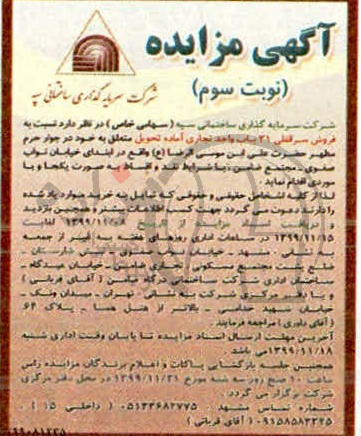 آگهی مزایده
(نوبت سوم)
شرکت سرمایه گذاری ساختمانی سپه
شرکت سرمایه گذاری ساختمانی سپه (سهامی خاص) در نظر دارد نسبت به
فروش سرقفلی ۳۱ باب واحد تجاری آماده تحویل متعلق به خود در جوار حرم
مطهر حضرت علی ابن موسی الرضا (ع) واقع در ابتدای خیابان نواب
صفوی - مجتمع ضامن ، با شرایط نقد و اقساط به صورت یکجا و یا
موردی اقدام نماید
لذا از کلیه اشخاص حقیقی و حقوقی که تمایل به خرید موارد یاد شده
را دارند دعوت می گردد جهت کسب اطلاعات بیشتر و همچنین بازدید
و دریافت مزایده از تاریخ ۱۳۹۹/۱۱/۰۸ لغایت
۱۳۹۹/۱۱/۱۵ در ساعات اداری روزهای هفته به غیر از جمعه
به نشانی : مشهد - خیابان نواب صفوی - نبش
ضلع پشت مجتمع مسکونی تجاری ضامن - خیابان عیدگاه -
ساختمان اداری شرکت ساختمانی درگاه ضامن ( آقای قربانی )
و یا دفتر مرکزی شرکت به نشانی : تهران - میدان ونک -
خیابان شهید خدامی - بالاتر از هتل هما - پلاک ۶۴
( آقای داوری ) مراجعه فرمایند .
آخرین مهلت ارسال اسناد مزایده تا پایان وقت اداری شنبه
۱۳۹۹/۱۱/۱۸ می باشد .
همچنین جلسه بازگشایی پاکات و اعلام برندگان مزایده راس
ساعت ۱۰ صبح روز سه شنبه مورخ ۱۳۹۹/۱۱/۲۱ در محل دفتر مرکزی
شرکت برگزار می گردد .
شماره تماس مشهد : ۰۵۱۳۳۶۸۲۷۷۵ ( داخلی ۱۵ )
۰۹۱۵۸۵۸۳۲۲۵ ( آقای قربانی )